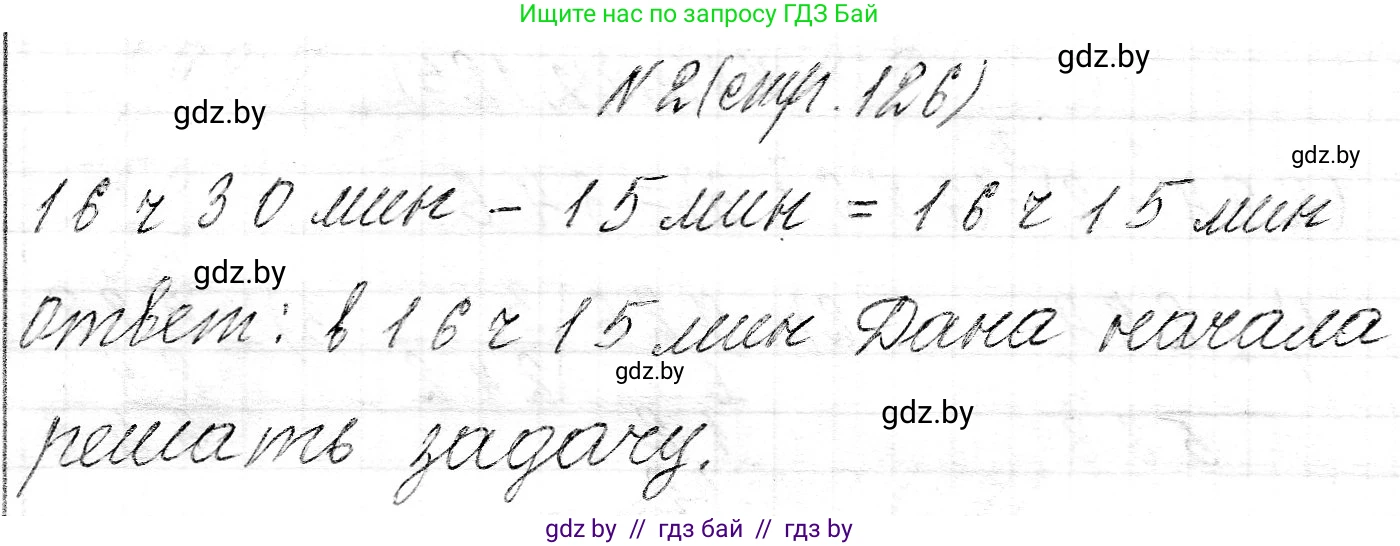 Ищите нас по запросу ГДЗ Бай
gdz.by
N2(стр.126)
gdz.by
gdz.by
16 ч 30 мин - 15 мин = 16 ч 15 мин
gdz.by
ответ: в 16 ч 15 мин Дана начала
gdz.by
gdz.by
решать задачу.
gdz by // гдз бай // гдз by